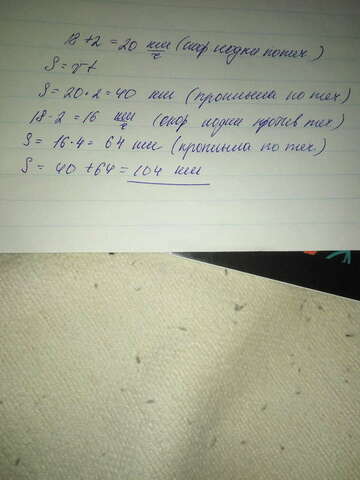 18 + 2 = 20 км/ч (скор лодки по теч)
S = vt
S = 20 · 2 = 40 км (проплыла по теч)
18 - 2 = 16 км/ч (скор лодки против теч)
S = 16 · 4 = 64 км (проплыла по теч.)
S = 40 + 64 = 104 км